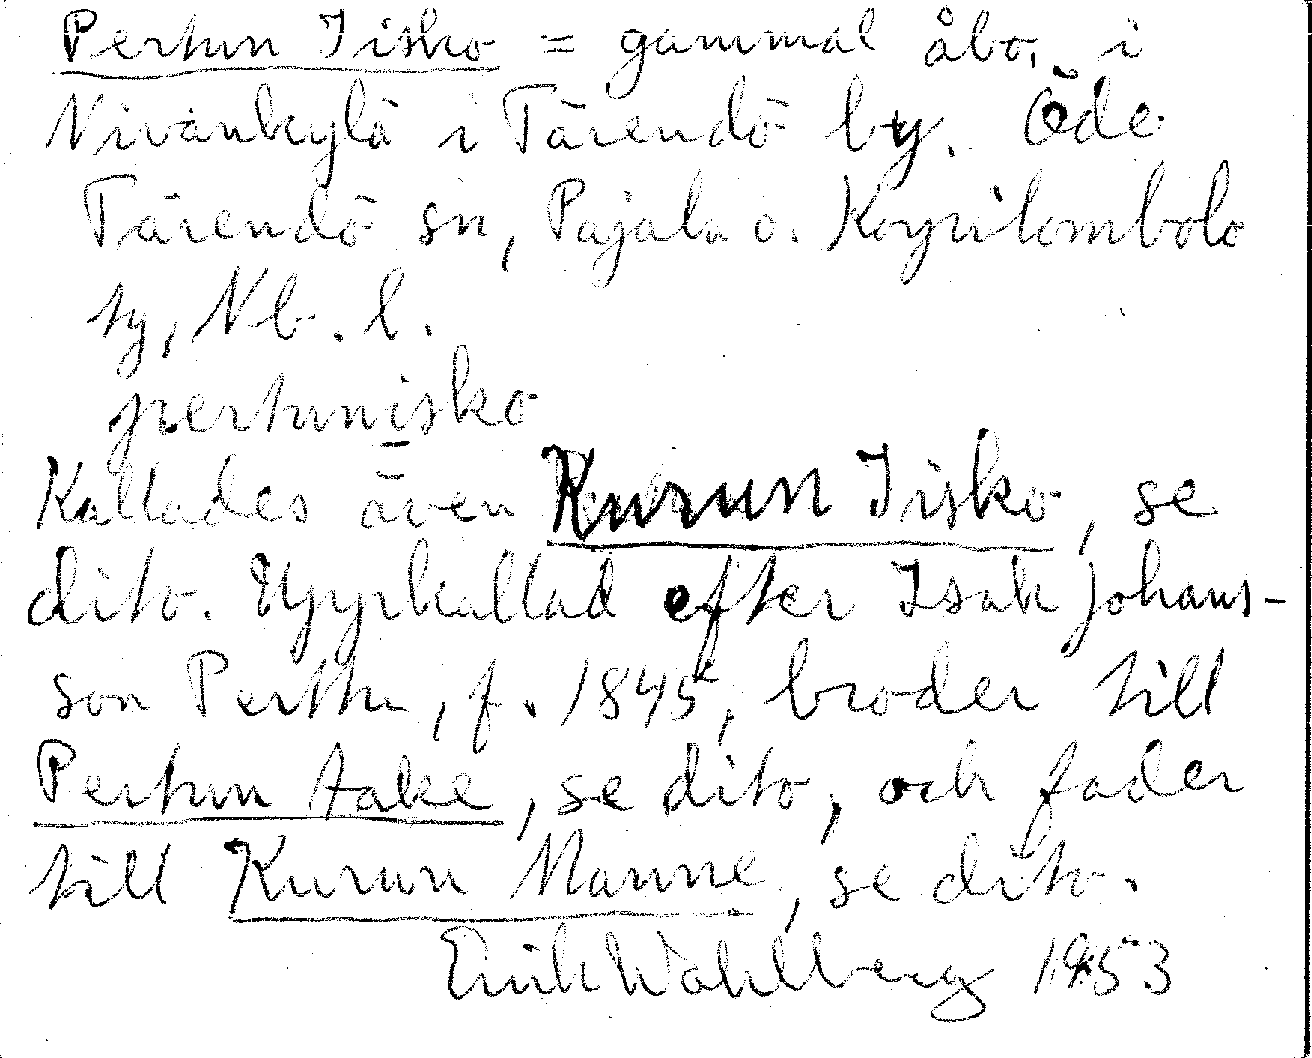 Pertun Iisko = gammal åbo i
Nivankylä i Tärendö by. Öde
Tärendö sn, Pajala o. Korpilombolo
tg, Nb. l.
pertunisko
Kallades även Kurun Iisko, se
dito. Uppkallad efter Isak Johans-
son Perttu, f. 1845, broder till
Pertun Aake, se dito, och fader
till Kurun Manne, se dito.
Erik Wahlberg 1953